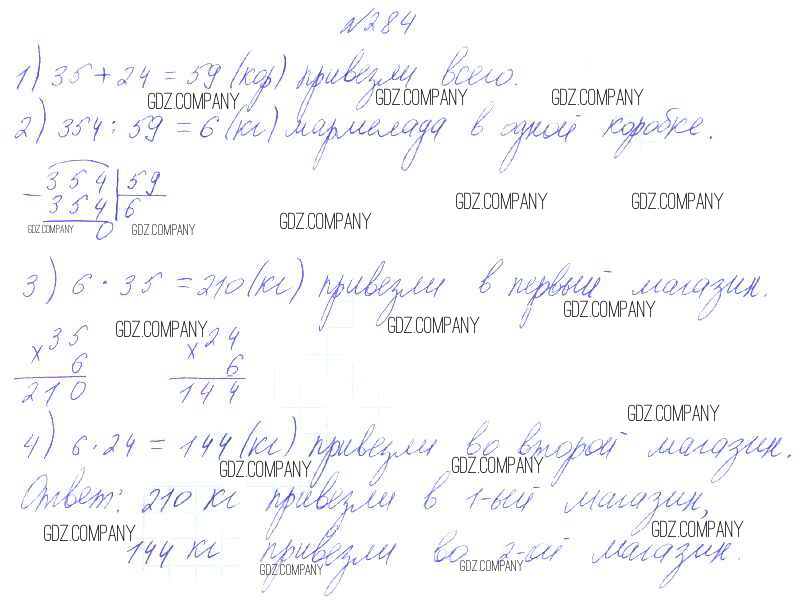 №284
1) 35 + 24 = 59 (кор) привезли всего.
GDZ.COMPANY GDZ.COMPANY GDZ.COMPANY
2) 354 : 59 = 6 (кг) мармелада в одной коробке.
- 354 | 59
354 | 6
0
GDZ.COMPANY GDZ.COMPANY GDZ.COMPANY GDZ.COMPANY GDZ.COMPANY
3) 6 · 35 = 210 (кг) привезли в первый магазин.
GDZ.COMPANY GDZ.COMPANY GDZ.COMPANY
х 35 х 24
6 6
210 144
GDZ.COMPANY
4) 6 · 24 = 144 (кг) привезли во второй магазин.
GDZ.COMPANY GDZ.COMPANY
Ответ: 210 кг привезли в 1-ый магазин,
GDZ.COMPANY GDZ.COMPANY
144 кг привезли во 2-ой магазин.
GDZ.COMPANY GDZ.COMPANY